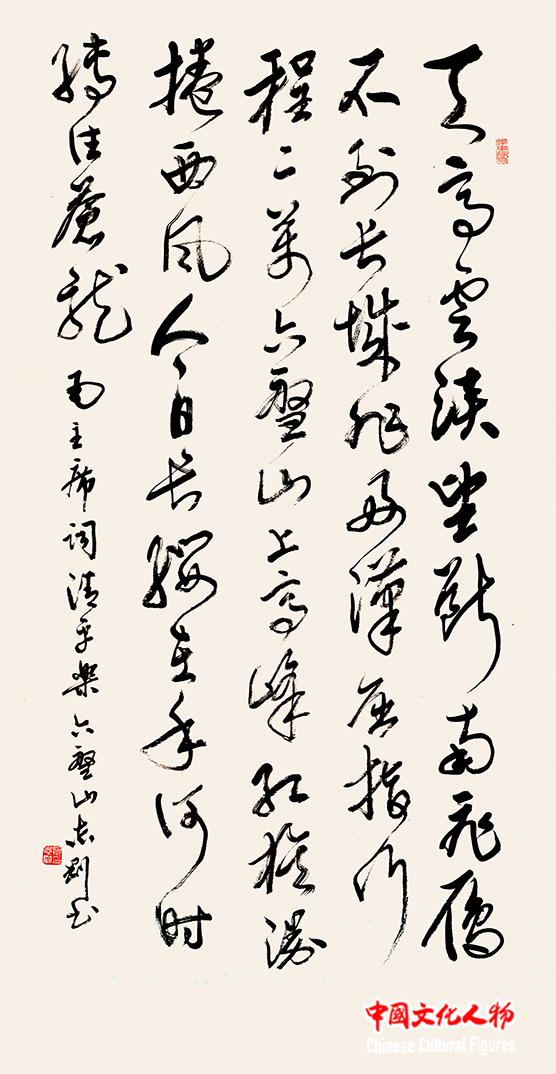 天高雲淡望斷南飛雁
不到长城非好漢屈指行
程二萬六盤山上高峰红旗漫
捲西风今日长缨在手何时
缚住蒼龍
毛主席词清平樂六盤山志刚书
中國文化人物
Chinese Cultural Figures